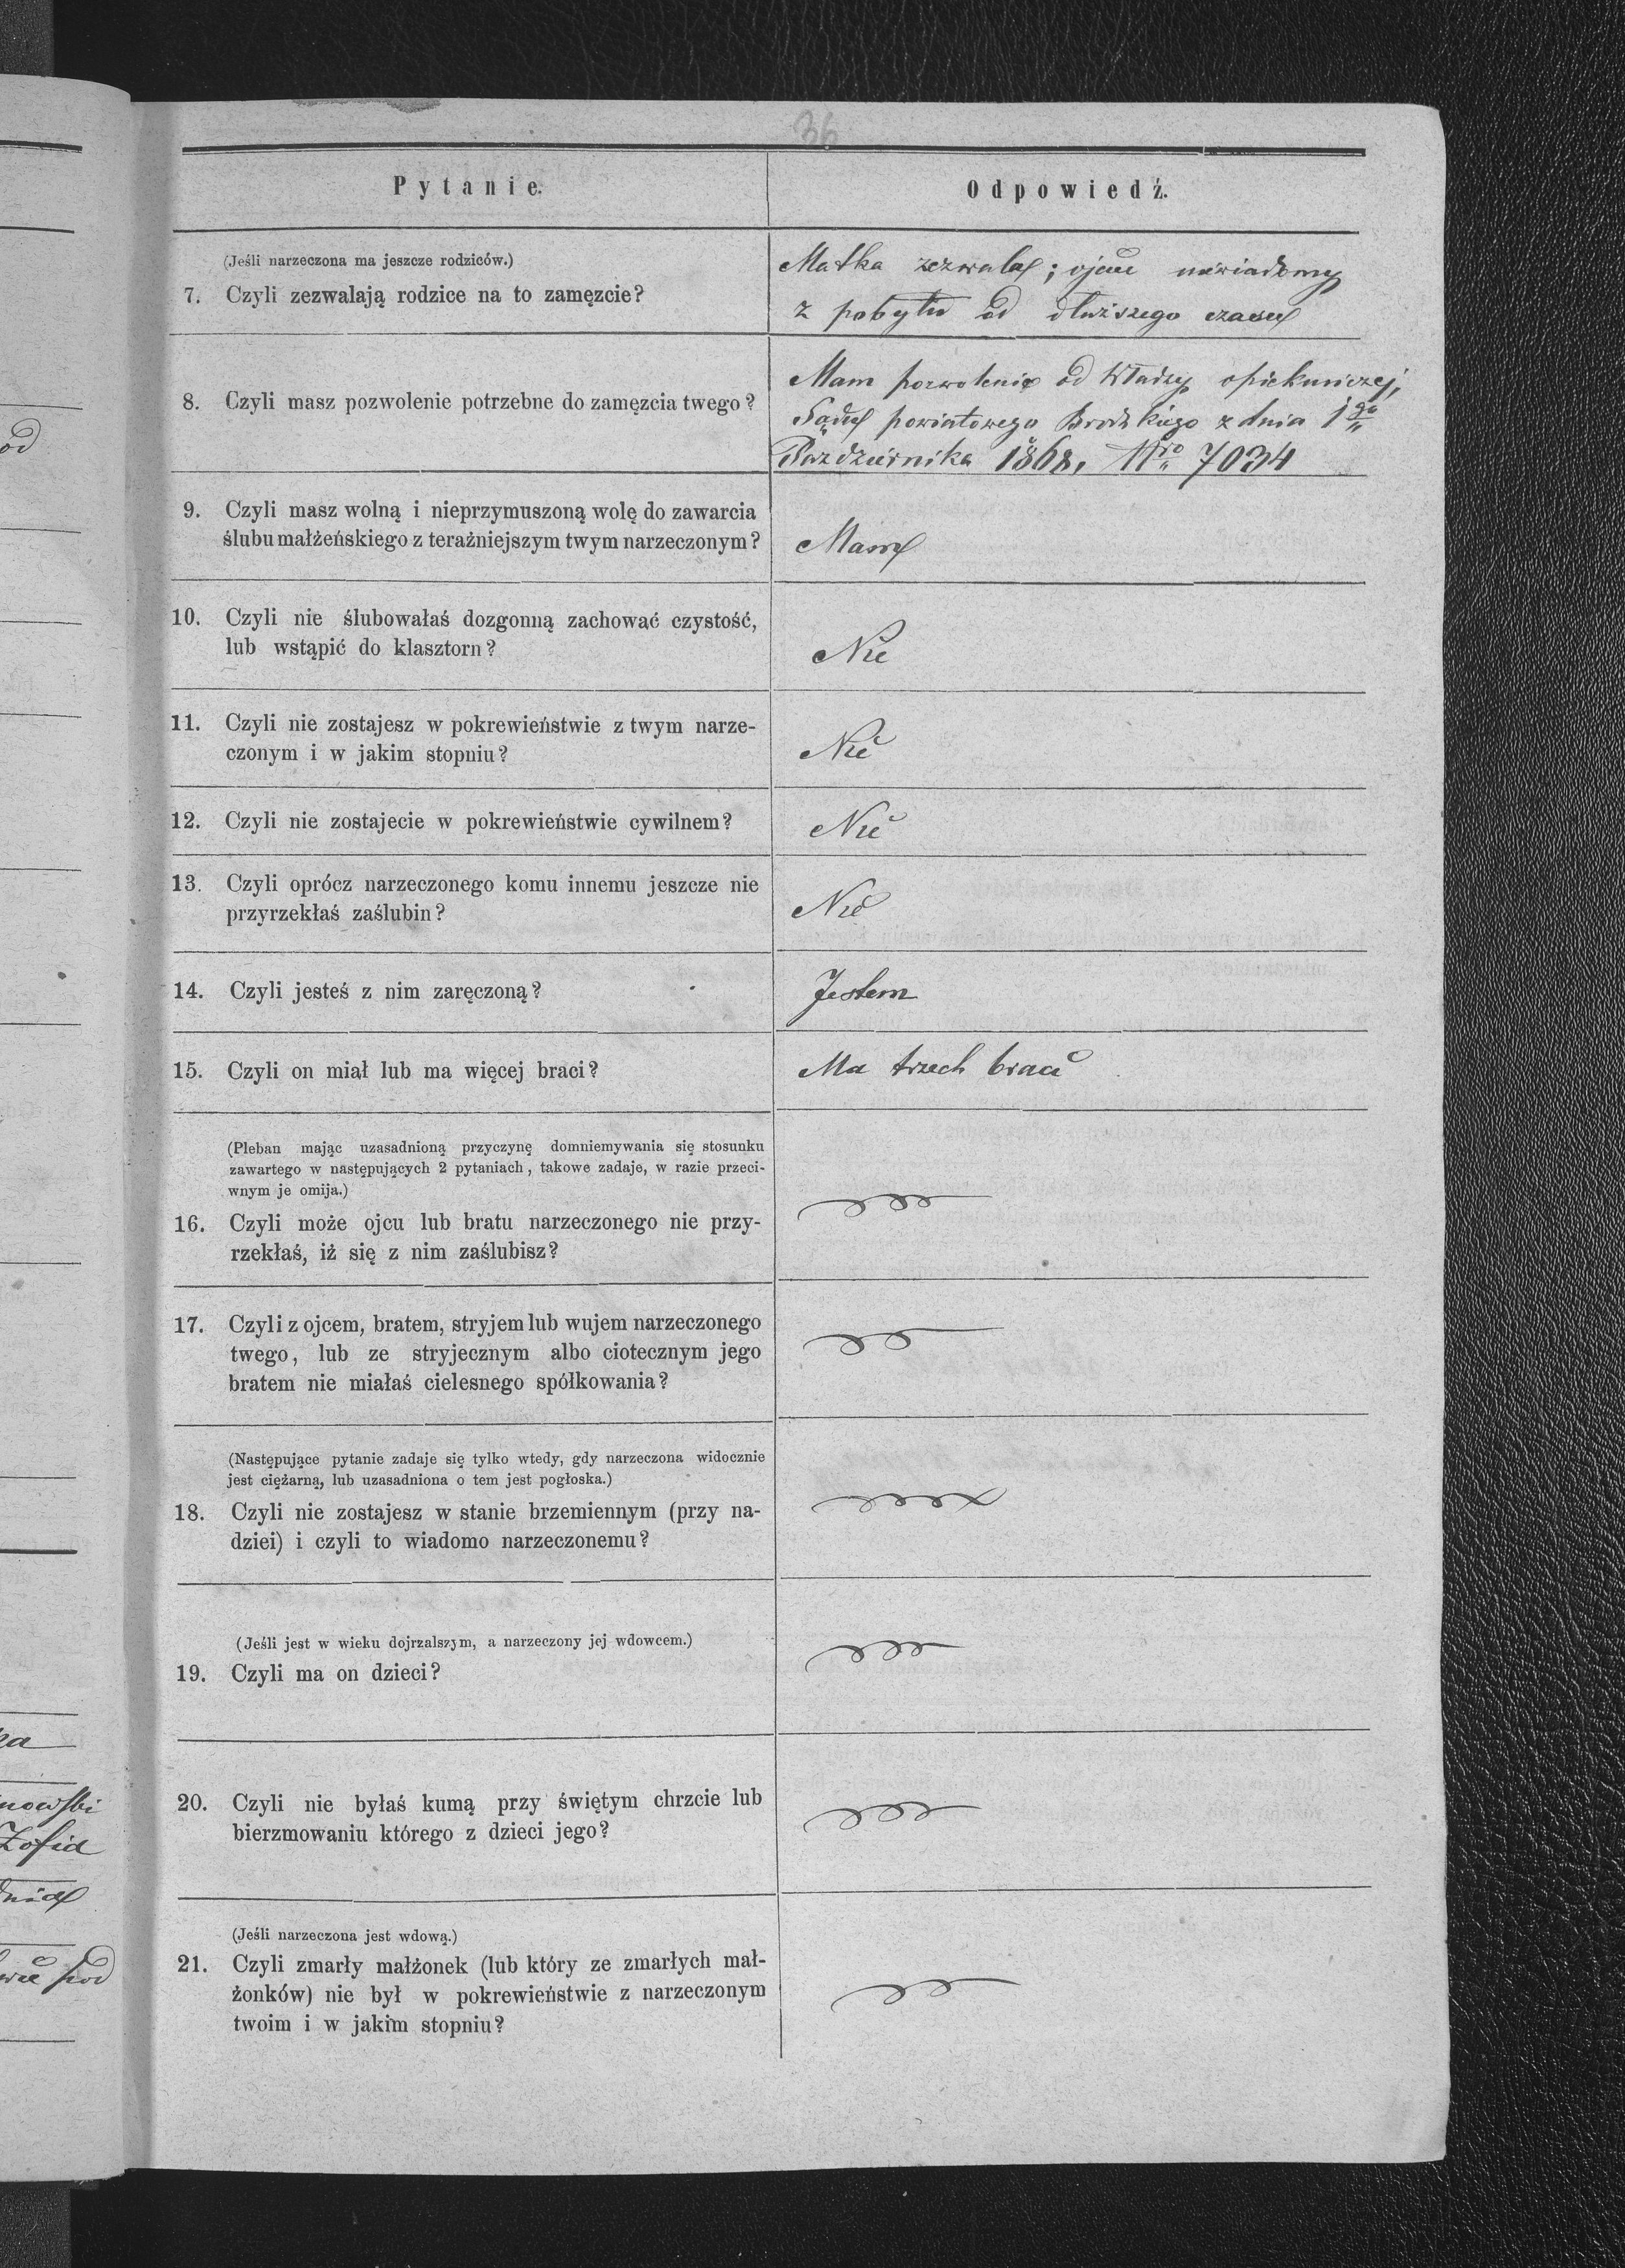 36
Pytanie.
Odpowiedź.
(Jeśli narzeczona ma jeszcze rodziców.)
7. Czyli zezwalają rodzice na to zamęzcie?
Matka zezwala; ojciec niewiadomy
z pobytu od dłuższego czasu
8. Czyli masz pozwolenie potrzebne do zamęzcia twego?
Mam pozwolenie od Władzy opiekuniczej,
Sądu powiatowego Brodzkiego z dnia 1go
Pazdziernika 1868, Nro 7034
9. Czyli masz wolną i nieprzymuszoną wolę do zawarcia
ślubu małżeńskiego z teraźniejszym twym narzeczonym?
Mam
10. Czyli nie ślubowałaś dozgonną zachować czystość,
lub wstąpić do klasztorn?
Nie
11. Czyli nie zostajesz w pokrewieństwie z twym narze-
czonym i w jakim stopniu?
Nie
12. Czyli nie zostajecie w pokrewieństwie cywilnem?
Nie
13. Czyli oprócz narzeczonego komu innemu jeszcze nie
przyrzekłaś zaślubin?
Nie
14. Czyli jesteś z nim zaręczoną?
Jestem
15. Czyli on miał lub ma więcej braci?
Ma trzech braci
(Pleban mając uzasadnioną przyczynę domniemywania się stosunku
zawartego w następujących 2 pytaniach, takowe zadaje, w razie przeci-
wnym je omija.)
16. Czyli może ojcu lub bratu narzeczonego nie przy-
rzekłaś, iż się z nim zaślubisz?
17. Czyli z ojcem, bratem, stryjem lub wujem narzeczonego
twego, lub ze stryjecznym albo ciotecznym jego
bratem nie miałaś cielesnego spółkowania?
(Następujące pytanie zadaje się tylko wtedy, gdy narzeczona widocznie
jest ciężarną, lub uzasadniona o tem jest pogłoska.)
18. Czyli nie zostajesz w stanie brzemiennym (przy na-
dziei) i czyli to wiadomo narzeczonemu?
(Jeśli jest w wieku dojrzalszym, a narzeczony jej wdowcem.)
19. Czyli ma on dzieci?
20. Czyli nie byłaś kumą przy świętym chrzcie lub
bierzmowaniu którego z dzieci jego?
(Jeśli narzeczona jest wdową.)
21. Czyli zmarły małżonek (lub który ze zmarłych mał-
żonków) nie był w pokrewieństwie z narzeczonym
twoim i w jakim stopniu?
od
nowski
Zofia
pod